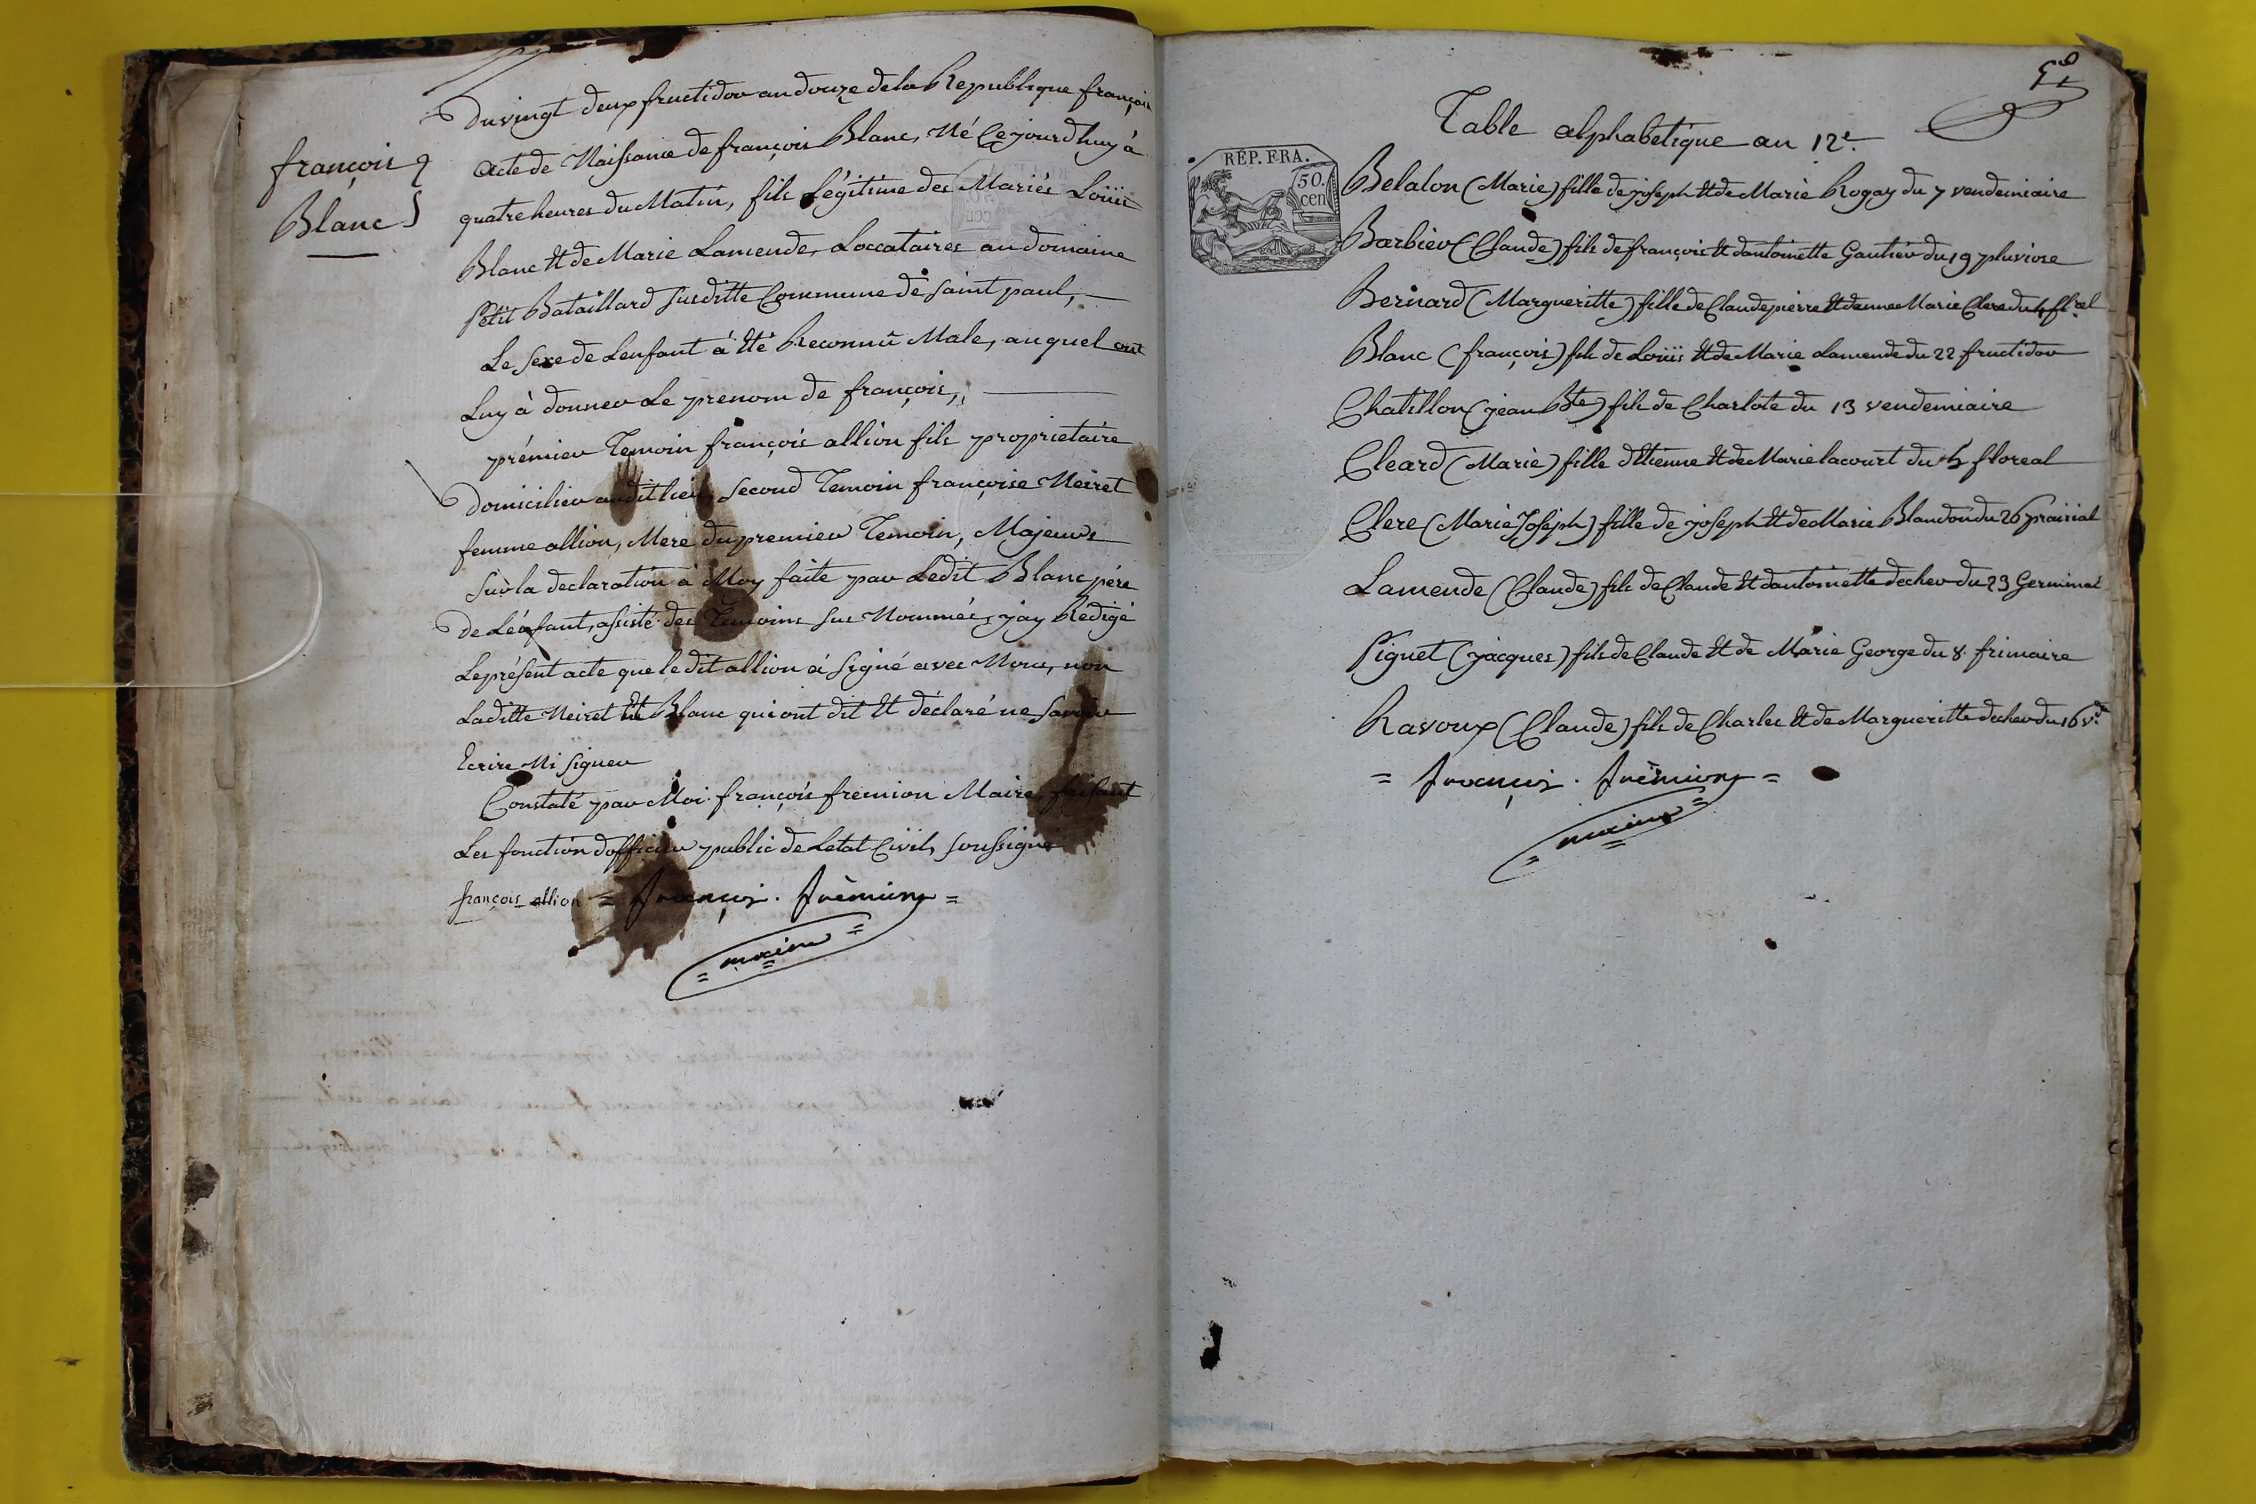 françois
Blanc
Du vingt deux fructidor an douze de la Republique françoise
acte de Naissance de françois Blanc, Né Cejourdhuy à
quatre heures du Matin, fils légitime des Mariés Loüis
Blanc Et de Marie Lamende, Loccataires au domaine
Petit Bataillard susditte Commune de saint paul,
Le sexe de Lenfant à Eté Reconnû Male, auquel ont
Luy à donner Le prenom de françois,
prémier Temoin françois allion fils proprietaire
Domicilier audit lieu, second Temoin françoise Neiret
femme allion, Mere du premier Temoin, Majeurs
Sur la declaration à Moy faite par Ledit Blanc pére
De Lénfant, assisté des Temoins sus Nommés, jay Rédigé
Le présent acte que le dit allion à signé avec Nous, non
Laditte Neiret Et Blanc qui ont dit Et déclaré ne savoir
Ecrire Ni signer
Constaté par Moi françois fremion Maire faisant
Les fonction dofficier public de Letat Civil, soussigné
françois allion = françois . frèmion =
= maire =
Table alphabetique an 12e.
RÉP. FRA.
50.
cen
Belalon (Marie) fille de joseph Et de Marie Rogay du 7 vendemiaire
Barbier (Claude) fils de françois Et dantoinette Gautier du 19 pluviose
Bernard (Margueritte) fille de Claude pierre Et danne Marie Clere du 4 flal
Blanc (françois) fils de Loüis Et de Marie Lamende du 22 fructidor
Chatillon (jean Bte) fils de Charlote du 13 vendemiaire
Cleard (Marie) fille dEtienne Et de Marie lacourt du floreal
Clere (Marie Joséph) fille de joseph Et de Marie Blandon du 26 prairial
Lamende (Claude) fils de Claude Et dantoinette decher du 23 Germinal
Piguet (jacques) fils de Claude Et de Marie George du 8 frimaire
Ravoux (Claude) fils de Charles Et de Margueritte decher du 16 vde
= françois . frèmion =
= maire =